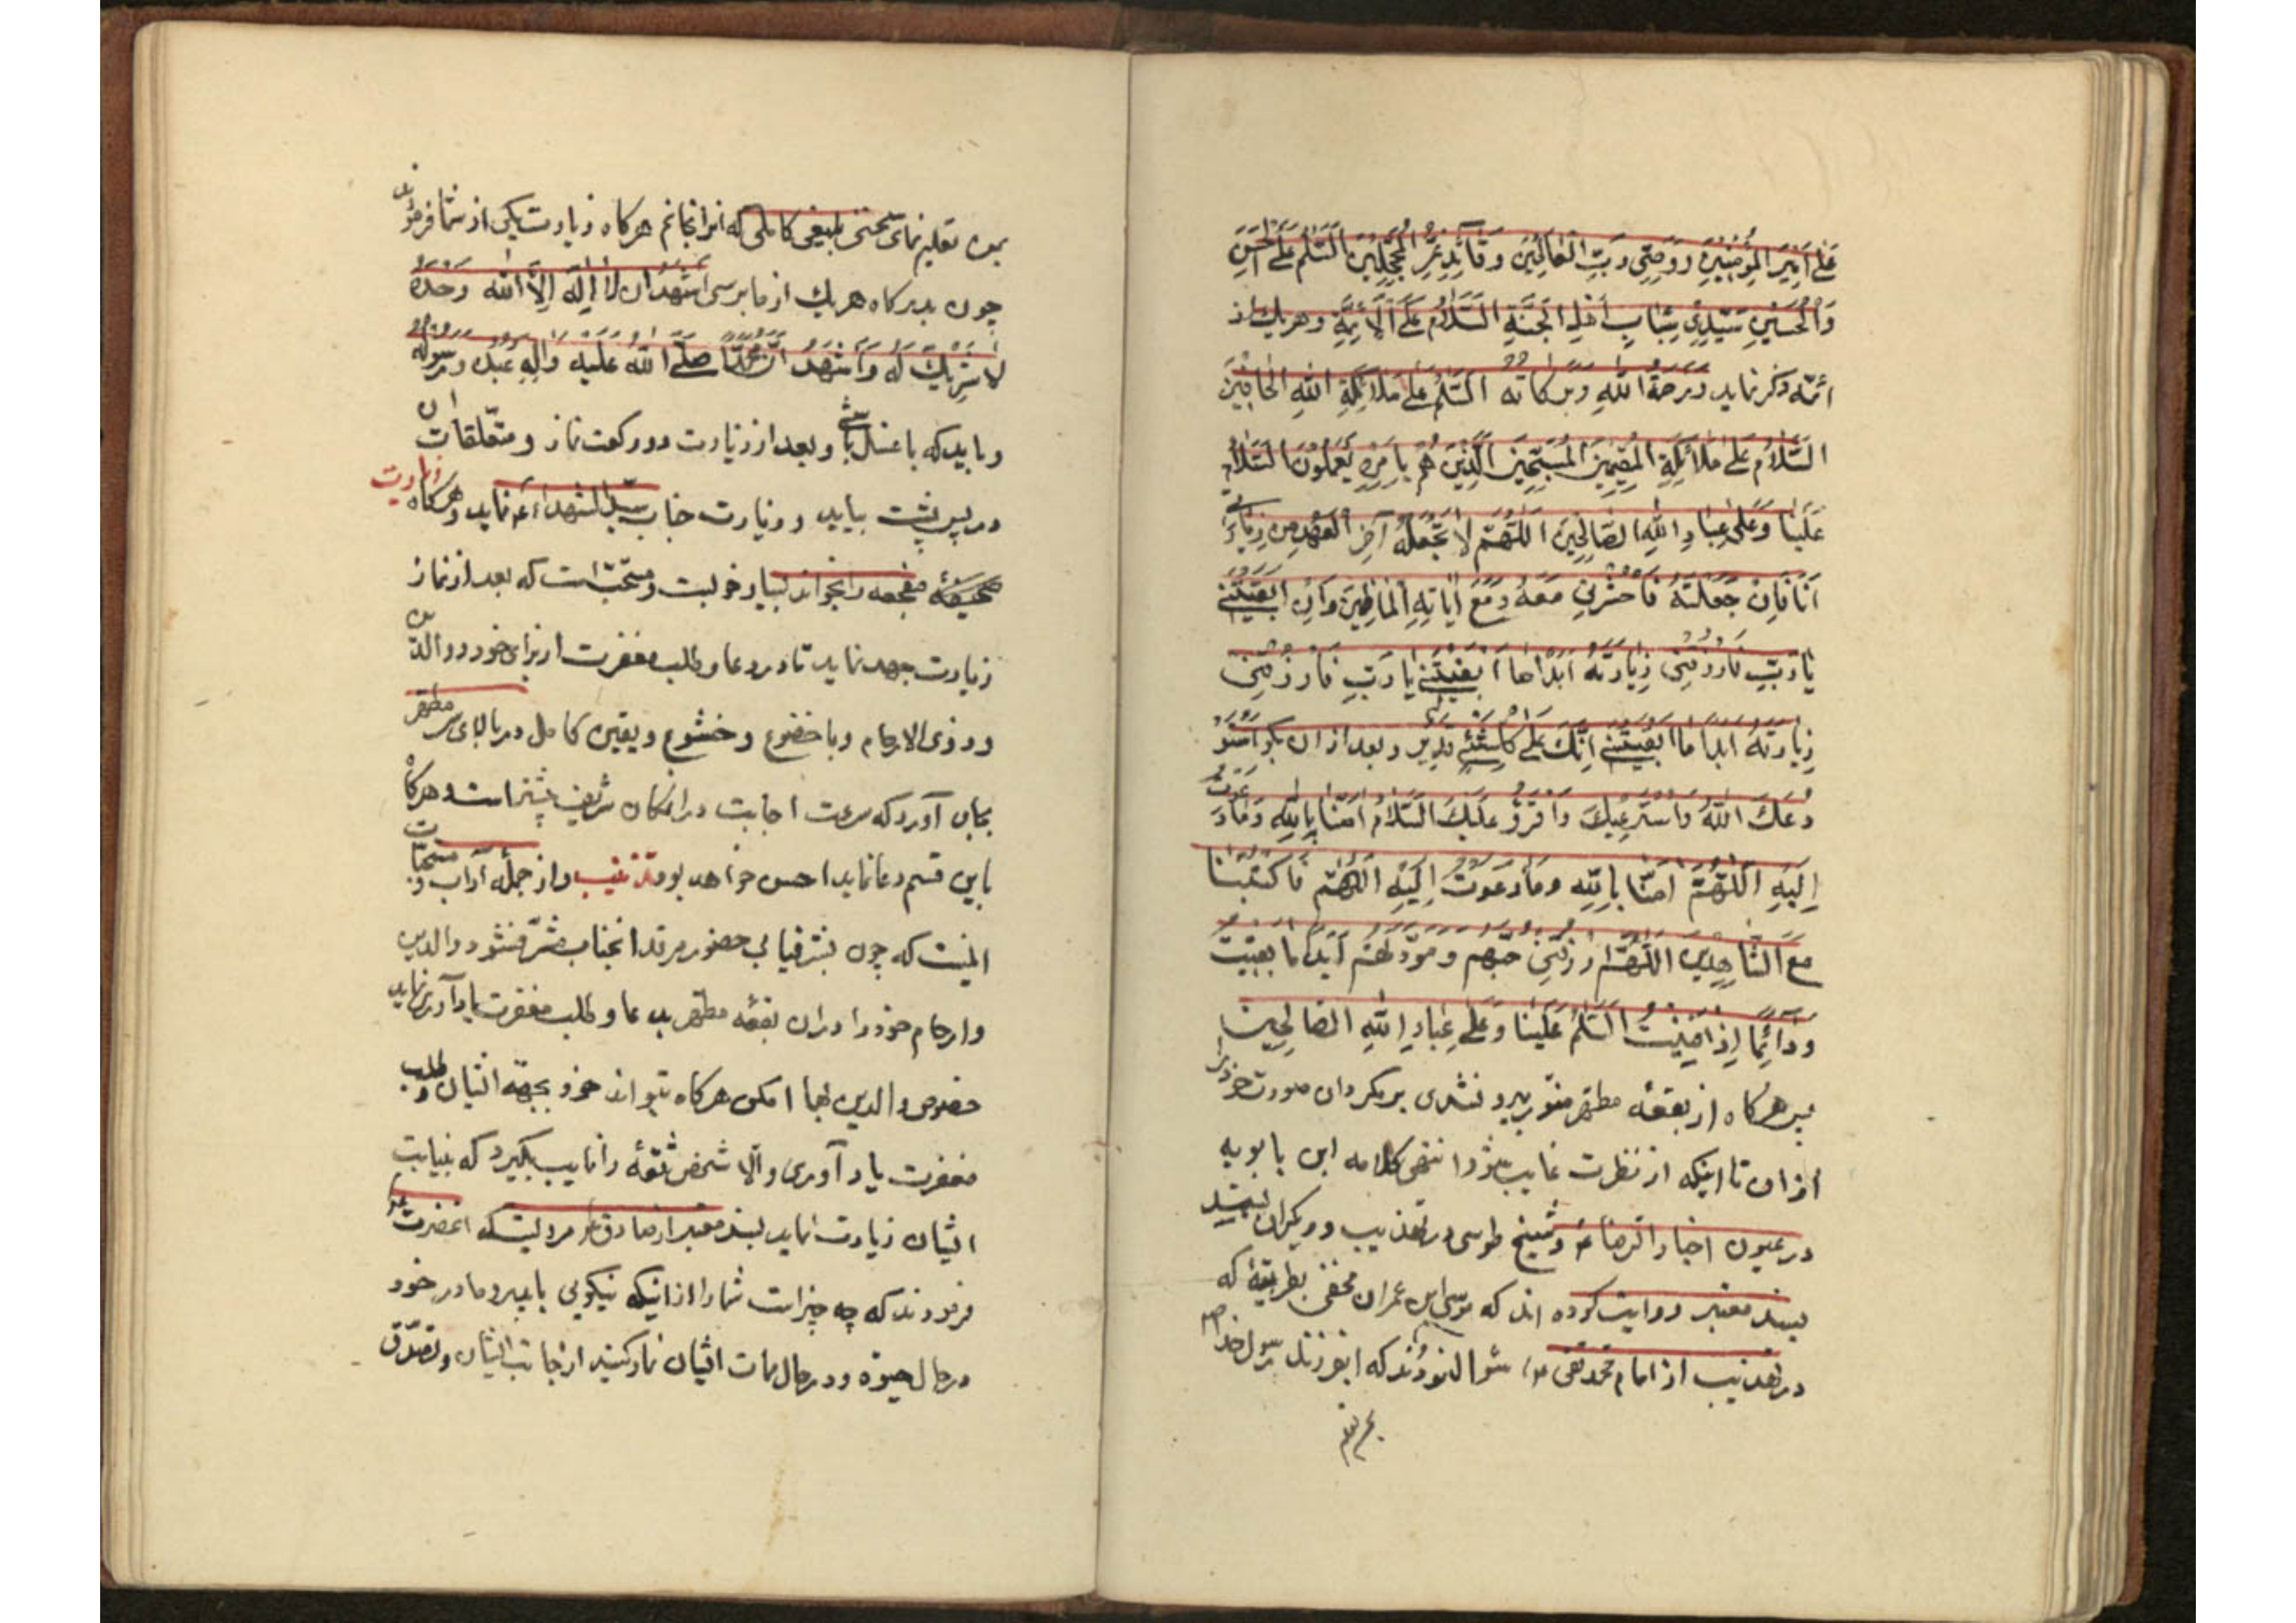 عَلیٰ اَمیرِ المُؤمِنینَ وَ وَصِیِّ رَبِّ العالَمینَ وَ قائِدِ غُرِّ المُحَجَّلینَ السَّلامُ عَلَی الحَسَنِ
وَالحُسَینِ سَیِّدَی شَبابِ اَهلِ الجَنَّةِ السَّلامُ عَلَی الاَئِمَّةِ و هریك از
ائمّه ذکر نماید وَ رَحمَةُ اللهِ وَ بَرَکاتُهُ السَّلامُ عَلیٰ مَلائِکَةِ اللهِ الحافّینَ
السَّلامُ عَلیٰ مَلائِکَةِ المُقیمینَ المُسَبِّحینَ الَّذینَ هُم بِاَمرِهِ یَعمَلونَ السَّلامُ
عَلَینا وَ عَلیٰ عِبادِ اللهِ الصّالِحینَ اَللّهُمَّ لا تَجعَلهُ آخِرَ العَهدِ مِن زِیارَتی
فَاِن جَعَلتَهُ فَاحشُرنی مَعَهُ وَ مَعَ اٰبائِهِ الماضینَ وَ اِن اَبقَیتَنی
یا رَبِّ فَارزُقنی زِیارَتَهُ اَبَدًا ما اَبقَیتَنی یا رَبِّ فَارزُقنی
زِیارَتَهُ اَبَدًا ما اَبقَیتَنی اِنَّكَ عَلیٰ کُلِّ شَیئٍ قَدیر و بعد از ان بکو اَستَو
دِعُكَ اللهَ وَ اَستَرعیكَ وَ اَقرَؤُ عَلَیكَ السَّلامُ اٰمَنّا بِاللهِ وَ مٰا دَعَوتَ
اِلَیهِ اَللّهُمَّ اٰمَنّا بِاللهِ وَ مٰا دَعَوتَ اِلَیهِ اَللّهُمَّ فَاکتُبنا
مَعَ الشّاهِدینَ اَللّهُمَّ ارزُقنی حُبَّهُم وَ مَوَدَّتَهُم اَبَدًا ما بَقیتُ
وَ دائِمًا اِذا فَنیتُ السَّلامُ عَلَینا وَ عَلیٰ عِبادِ اللهِ الصّالِحینَ
پس هرکاه از بقعه مطهر منور بیرون شدی برمکردان صورت خود را
از ان تا اینکه از نظرت غایب شود انتهی کلامه ابن بابویه
در عیون اخبار الرضا ع و شیخ طوسی در تهذیب و دیکران بسند
بسند معتبر روایت کرده اند که موسی ابن عمران نخعی بطریقهٔ که
در تهذیب از امام محمد نقی ع سؤال نمودند که ایفرزند رسول خدا ص
بمن تعلیم نمای سخنی بلیغی کاملی که انرا بخوانم هرکاه زیارت یکی از شما فرمودند
چون بدرکاه هریك از ما برسی اَشهَدُ اَن لا اِلٰهَ اِلَّا اللهُ وَحدَهُ
لا شَریكَ لَهُ وَ اَشهَدُ اَنَّ مُحَمَّدًا صَلَّی اللهُ عَلَیهِ وَ اٰلِهِ عَبدُهُ وَ رَسولُهُ
و باید که با غسل باشی و بعد از زیارت دو رکعت نماز و متعلقات ان
در پس پشت بیاید و زیارت جناب سید الشهداء ع نماید و هرکاه زیارت
مفجعه را بخواند بسیار خوبست و مستحبّ است که بعد از نماز
زیارت جهد نماید تا در دعا و طلب مغفرت از برای خود و والدین
و ذوی الارحام و با خضوع و خشوع و یقین کامل در بالای سر مطهر
بجای آورد که سرعت اجابت در انمکان شریف بیشتر است و هرکاه
باین قسم دعا نماید احسن خواهد بود تذنیب و از جملهٔ آداب و مستحبّات
اینست که چون بشرفیابی حضور مرقد انجناب مشرّف شود والدین
و ارحام خود را در ان بقعهٔ مطهّر بدعا و طلب مغفرت یاد آوری نماید
خصوص والدین مهما امکن هرکاه بتواند خود بجههٔ ایشان و طلب
مغفرت یاد آوری و الّا شخص ثقهٔ را نایب بکیرد که بنیابت
ایشان زیارت نماید بسند معتبر از صادق ع مرویست که انحضرت
فرمودند که چه چیز است شما را از اینکه نیکویی با پدر و مادر خود
در حال حیوة و در حال ممات ایشان نماز کنید از جانب ایشان و تصدّق